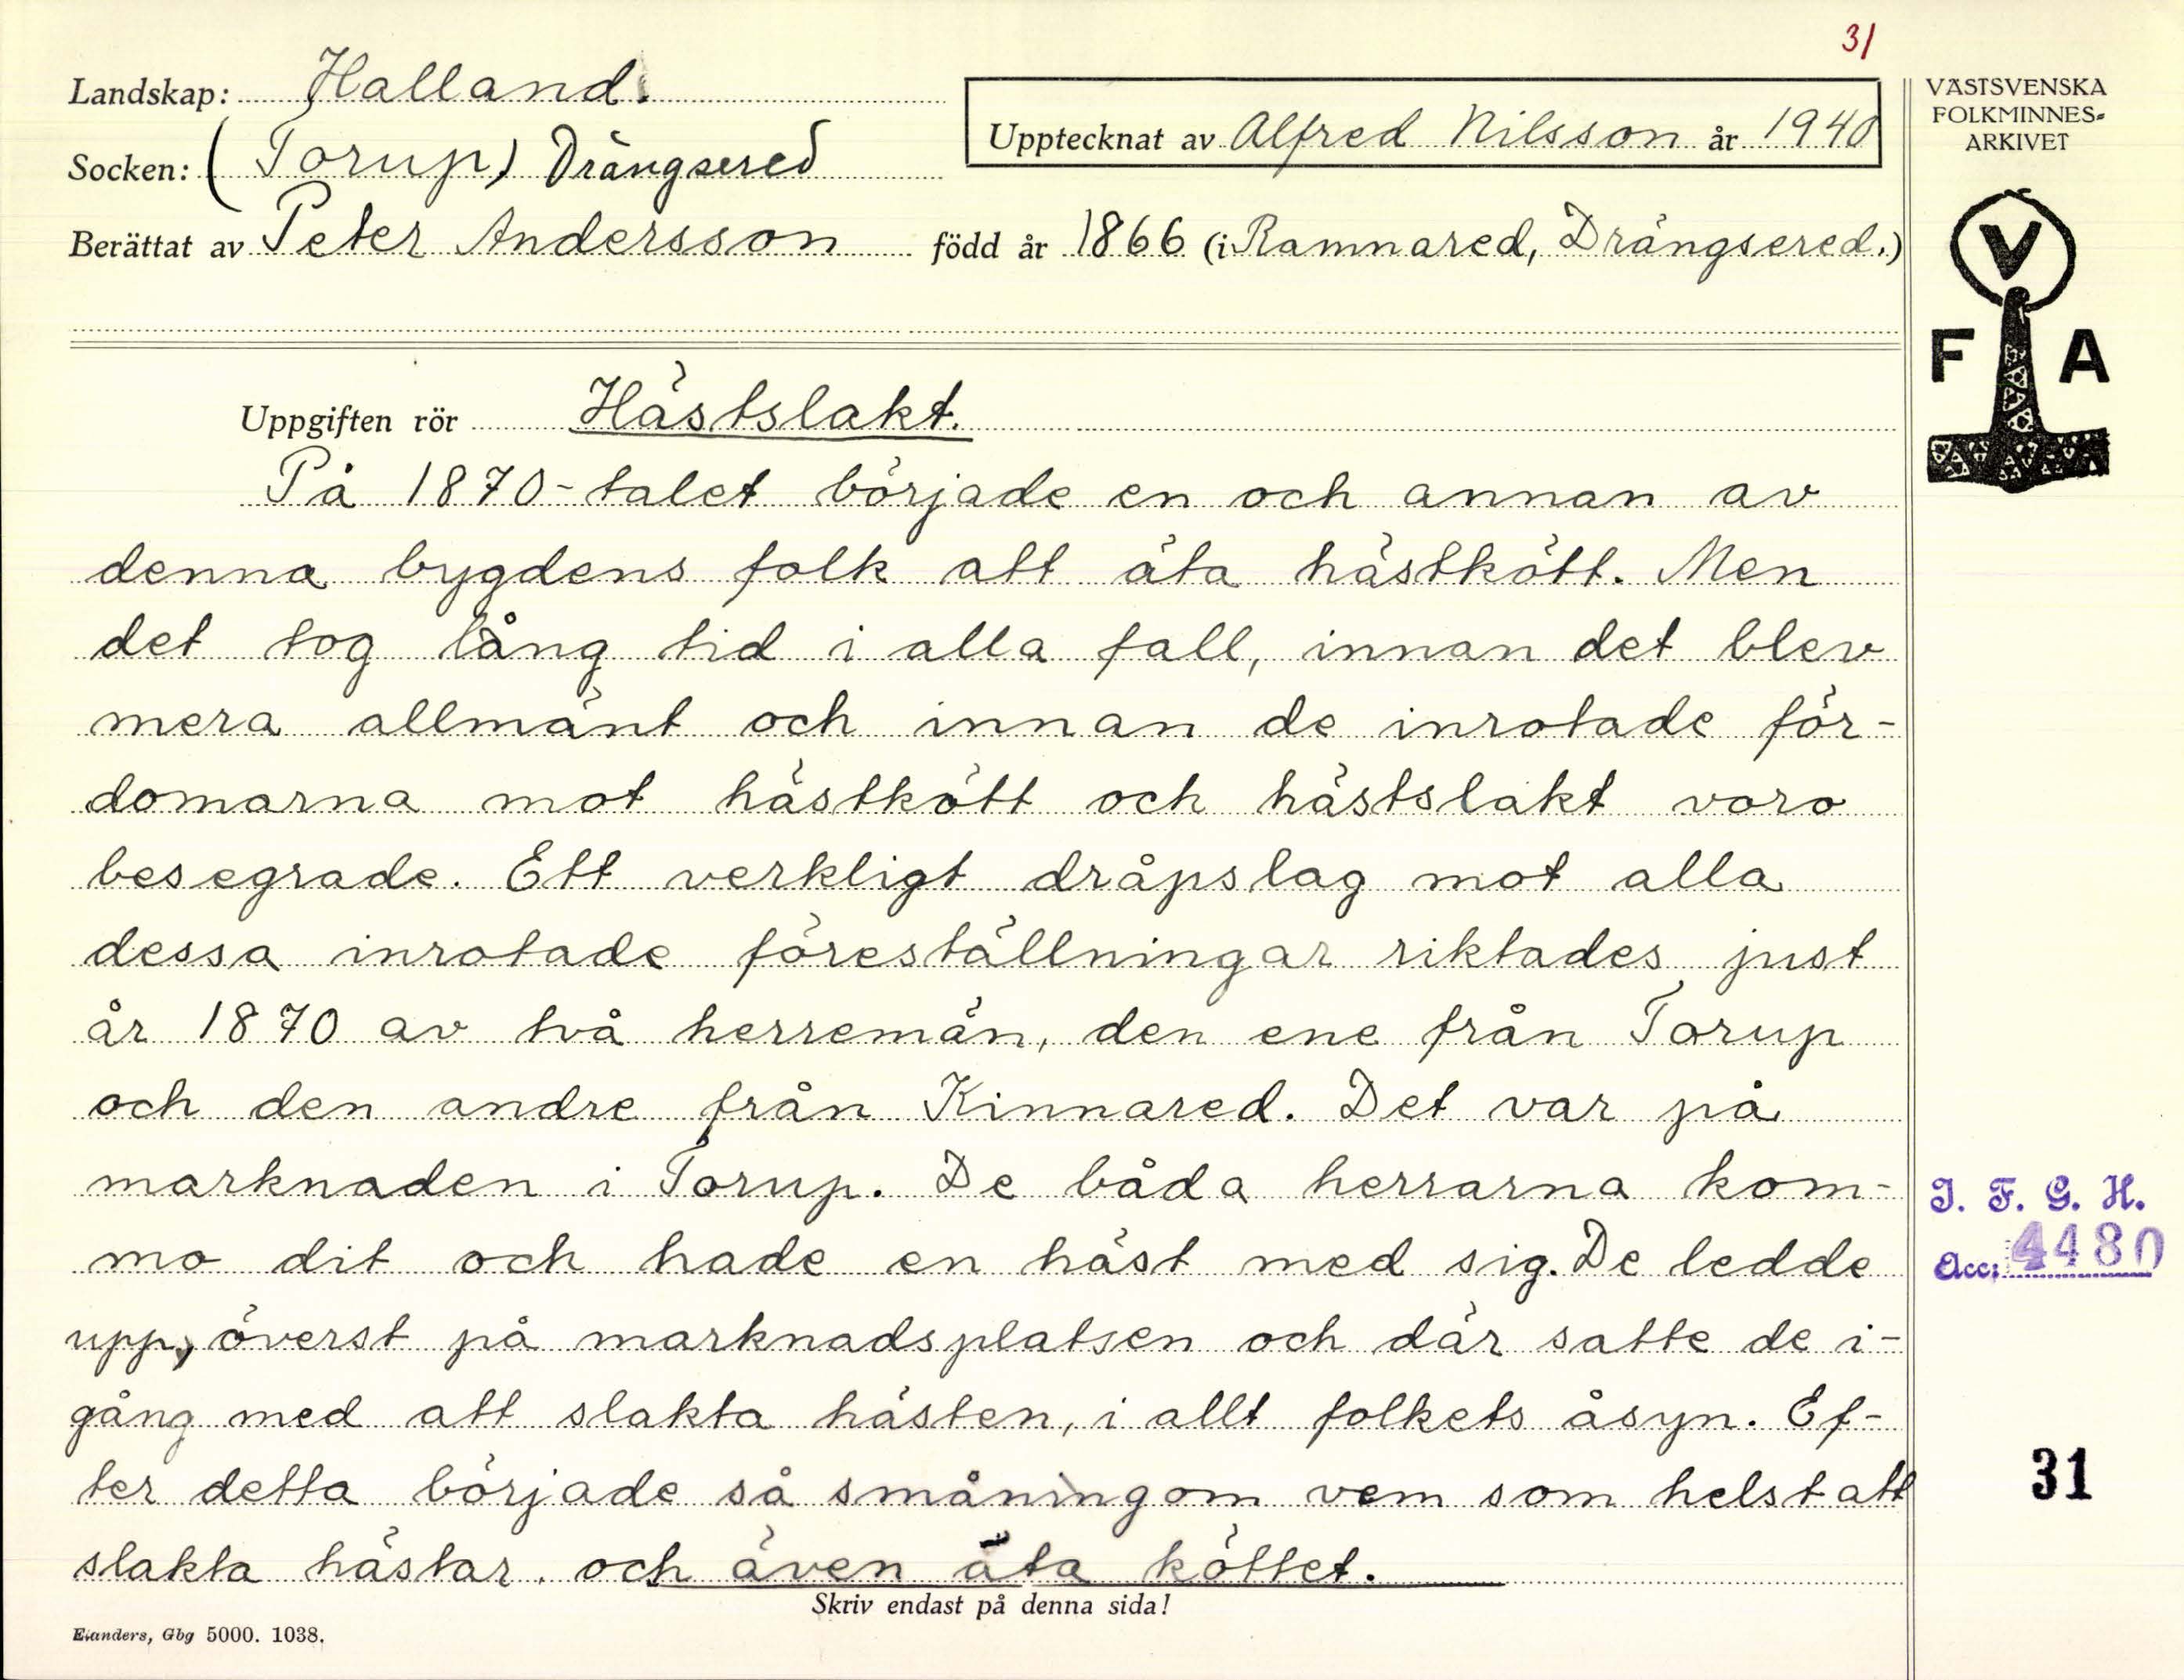 31
Landskap: Halland.
Socken: (Torup) Drängsered
Upptecknat av Alfred Nilsson år 1940
Berättat av Peter Andersson född år 1866 (i Ramnared, Drängsered.)
VÄSTSVENSKA
FOLKMINNES-
ARKIVET
V
F A
Uppgiften rör Hästslakt.
På 1870-talet började en och annan av
denna bygdens folk att äta hästkött. Men
det tog lång tid i alla fall, innan det blev
mera allmänt och innan de inrotade för-
domarna mot hästkött och hästslakt voro
besegrade. Ett verkligt dråpslag mot alla
dessa inrotade föreställningar riktades just
år 1870 av två herremän, den ene från Torup
och den andre från Kinnared. Det var på
marknaden i Torup. De båda herrarna kom-
mo dit och hade en häst med sig. De ledde
upp, överst på marknadsplatsen och där satte de i-
gång med att slakta hästen, i allt folkets åsyn. Ef-
ter detta började så småningom vem som helst att
slakta hästar. och även äta köttet.
Skriv endast på denna sida!
Elanders, Gbg 5000. 1038.
I. F. G. H.
Acc: 4480
31